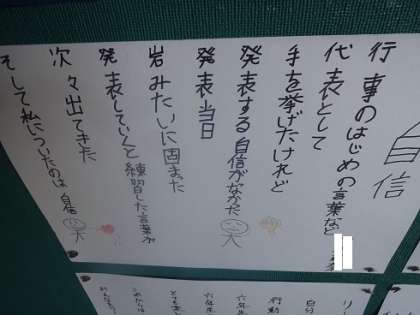 自信
行事のはじめの言葉など
代表として
手を挙げたけれど
発表する自信がなかった
発表当日
岩みたいに固まった
発表していくと練習した言葉が
次々出てきた
そして私についたのは自信
リー
自分
行動
六年